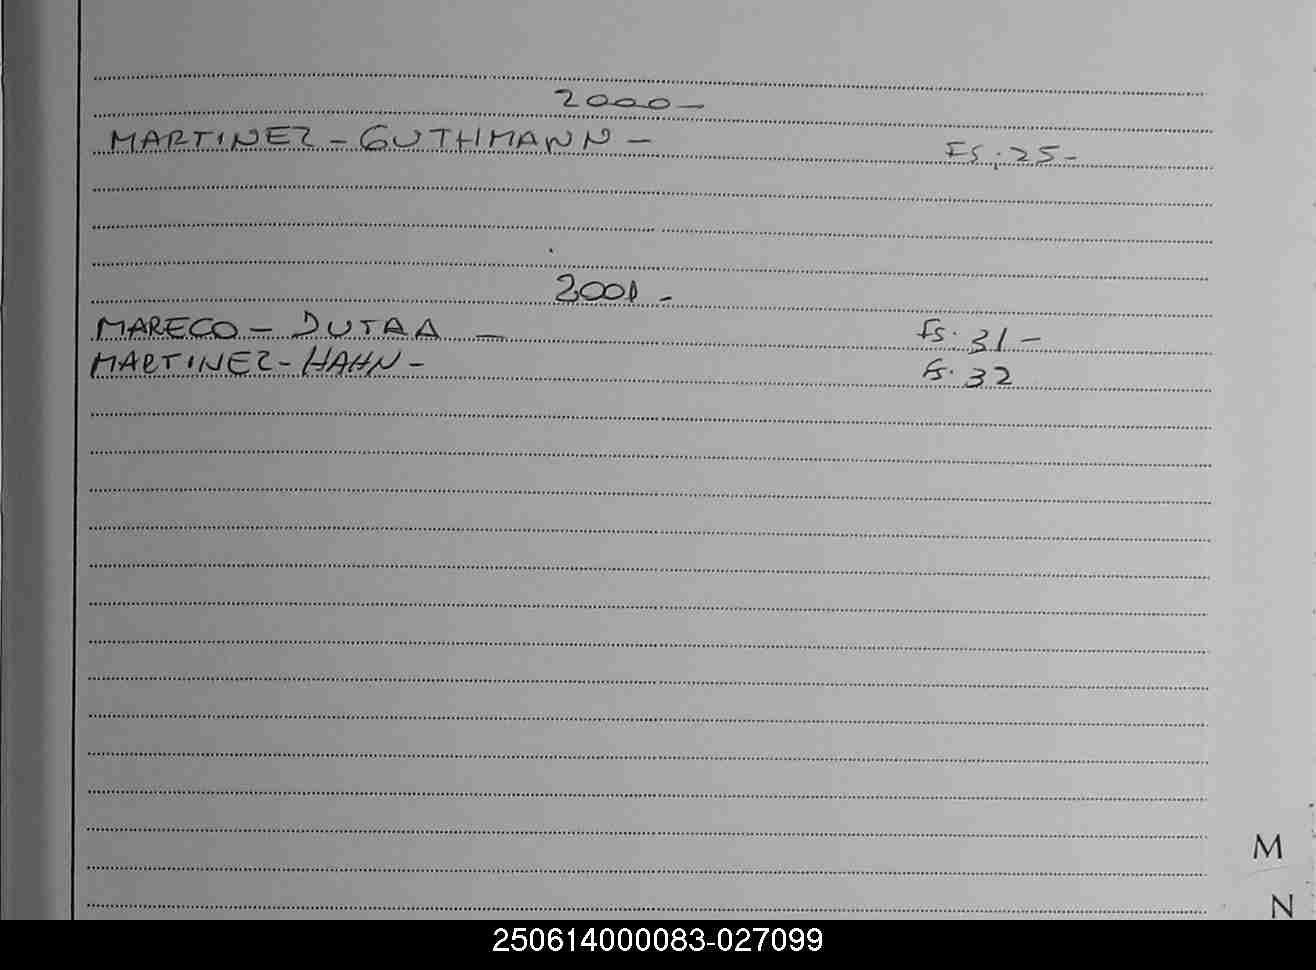 2000-
MARTINEZ-GUTHMANN- Fs. 25-
2001-
MARECO- DUTRA - Fs. 31-
MARTINEZ-HAHN- Fs. 32
M
N
250614000083-027099